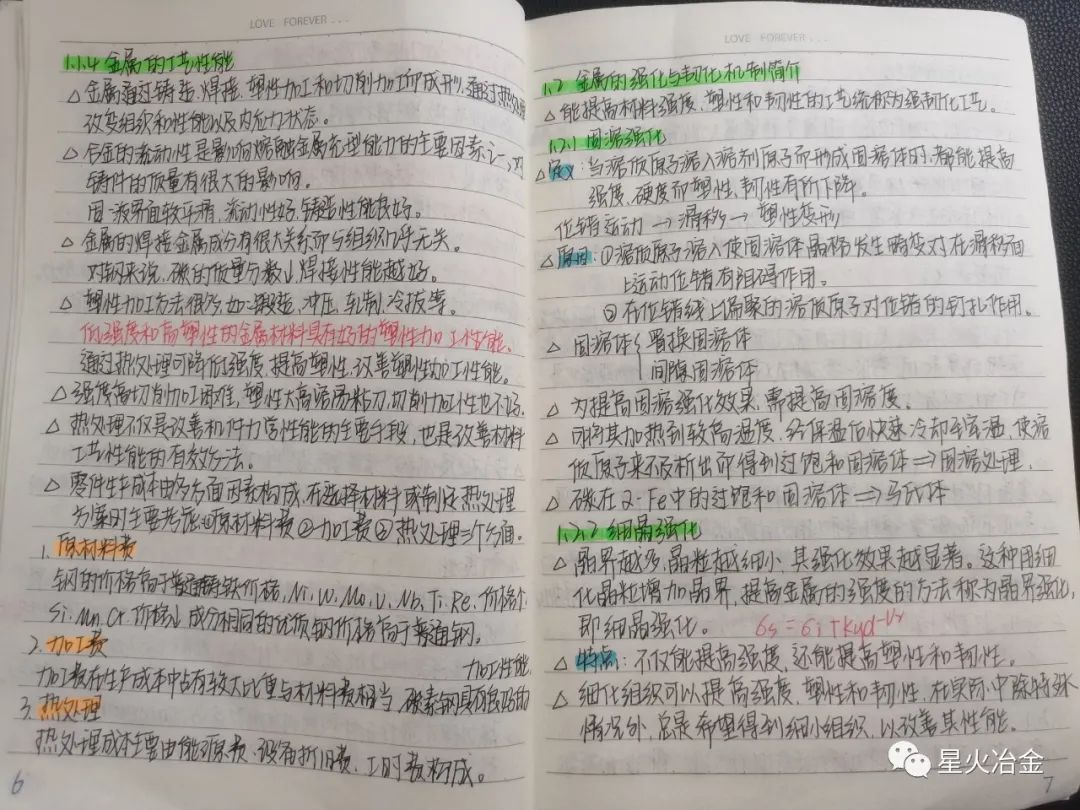 LOVE FOREVER...
1.1.4 金属的工艺性能
△ 金属通过铸造、焊接、塑性加工和切削加工而成形,通过热处理
改变组织和性能以及内应力状态。
△ 合金的流动性是影响熔融金属充型能力的主要因素之一,对
铸件的质量有很大的影响。
固-液界面较平滑,流动性好,铸造性能良好。
△ 金属的焊接金属成分有很大关系而与组织几乎无关。
对钢来说,碳的质量分数↓焊接性能越好。
△ 塑性加工方法很多,如:锻造、冲压、轧制、冷拔等。
低强度和高塑性的金属材料具有好的塑性加工性能。
通过热处理可降低强度,提高塑性,改善塑性加工性能。
△ 强度高切削加工困难,塑性大高溶易粘刀,切削加工性也不好。
△ 热处理不仅是改善机件力学性能的主要手段,也是改善材料
工艺性能的有效方法。
△ 零件生产成本由多方面因素构成,在选择材料或制定热处理
方案时主要考虑①原材料费②加工费③热处理三个方面。
1. 原材料费
钢的价格高于普通铸铁价格,Ni、W、Mo、V、Nb、Ti、Re、价格个
Si、Mn、Cr、价格↓ 成分相同的优质钢价格高于普通钢。
2. 加工费
加工性能
加工费在生产成本中占有较大比重与材料费相当,碳素钢具有良好的
3. 热处理
热处理成本主要由能源费、设备折旧费、工时费构成。
6
LOVE FOREVER...
1.2 金属的强化与韧化机制简介
△ 能提高材料强度、塑性和韧性的工艺统称为强韧化工艺。
1.2.1 固溶强化
△ 定义:当溶质原子溶入溶剂原子而形成固溶体时,都能提高
强度、硬度而塑性、韧性有所下降。
位错运动→滑移→塑性变形
△ 原因:①溶质原子溶入使固溶体晶格发生畸变对在滑移面
上运动位错有阻碍作用。
② 在位错线上偏聚的溶质原子对位错的钉扎作用。
△ 固溶体{置换固溶体
间隙固溶体
△ 为提高固溶强化效果,需提高固溶度。
△ 可将其加热到较高温度,经保温后快速冷却到室温,使溶
质原子来不及析出而得到过饱和固溶体⇒固溶处理.
△ 碳在α-Fe中的过饱和固溶体⇒马氏体
1.2.2 细晶强化
△ 晶界越多,晶粒越细小,其强化效果越显著。这种用细
化晶粒增加晶界,提高金属的强度的方法称为晶界强化,
即细晶强化。 6s=6i+kyd-1/2
△ 特点:不仅能提高强度,还能提高塑性和韧性。
△ 细化组织可以提高强度,塑性和韧性,在实际中除特殊
情况外,总是希望得到细小组织,以改善其性能。
星火冶金
7